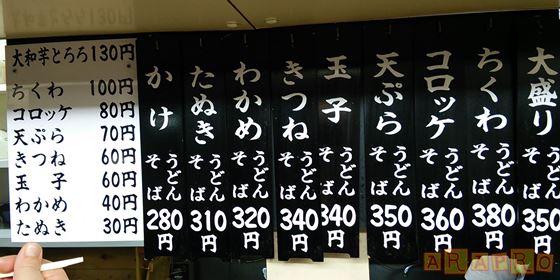 大和芋とろろ 130円
ちくわ 100円
コロッケ 80円
天ぷら 70円
きつね 60円
玉子 60円
わかめ 40円
たぬき 30円
かけ うどん そば 280円
たぬき うどん そば 310円
わかめ うどん そば 320円
きつね うどん そば 340円
玉子 うどん そば 340円
天ぷら うどん そば 350円
コロッケ うどん そば 360円
ちくわ うどん そば 380円
大盛り うどん そば 350円
ARAPRO